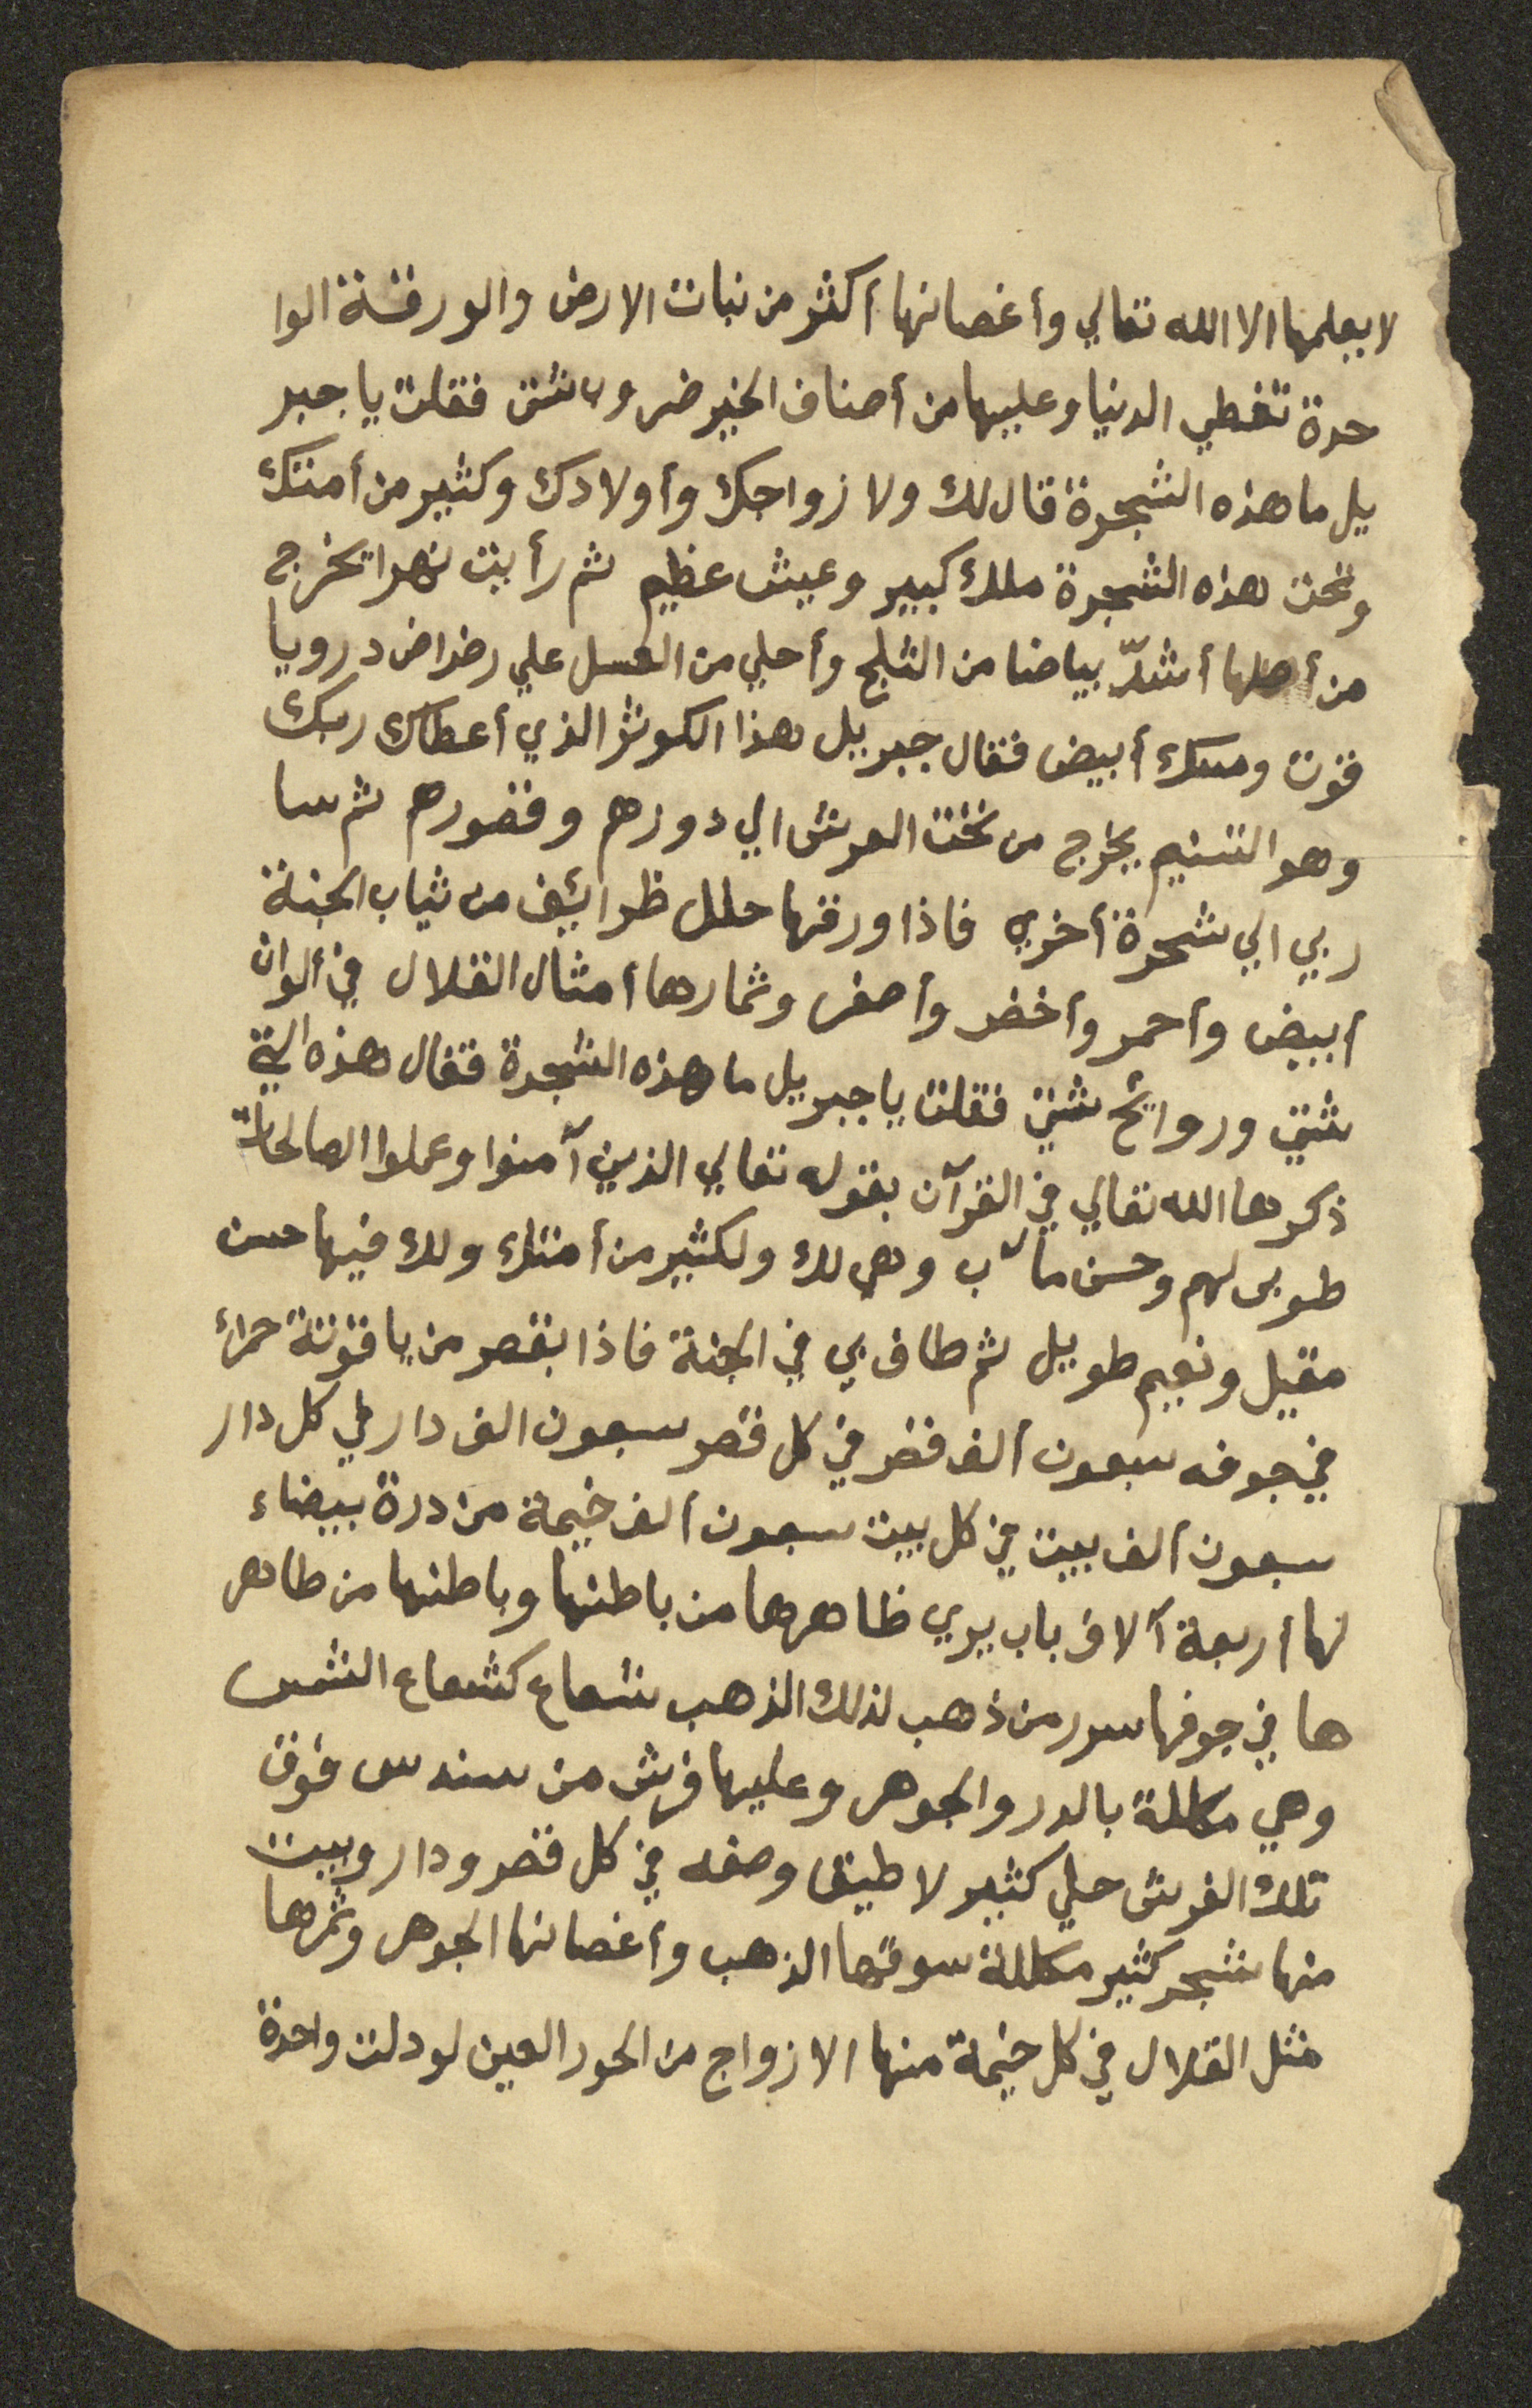 لا يعلمها الا الله تعالي وأغصانها أكثر من نبات الارض والورقة الوا
حدة تغطي الدنيا وعليها من أصناف الخير ضروب شتى فقلت يا جبر
يل ما هذه الشجرة قال لك ولا زواجك وأولادك وكثير من أمتك
وتحت هذه الشجرة ملك كبير وعيش عظيم ثم رأيت نهرا يخرج
من أصلها أشدّ بياضا من الثلج وأحلي من العسل علي رضراض درويا
قوت ومسك أبيض فقال جبريل هذا الكوثر الذي أعطاك ربك
وهو التسنيم يخرج من تحت العرش الي دورهم وقصورهم ثم سا
ربي الي شجرة أخري فاذا ورقها حلل ظرائف من ثياب الجنة
أبيض وأحمر وأخضر وأصفر وثمارها أمثال القلال في ألوان
شتي وروائح شتي فقلت يا جبريل ما هذه الشجرة فقال هذه التي
ذكرها الله تعالي في القرآن بقوله تعالي الذين آمنوا وعملوا الصالحات
طوبى لهم وحسن مآب وهي لك ولكثير من أمتك ولك فيها حسن
مقيل ونعيم طويل ثم طاف بي في الجنة فاذا بقصر من ياقوتة حمراء
في جوفه سبعون ألف قصر في كل قصر سبعون الف دار في كل دار
سبعون ألف بيت في كل بيت سبعون ألف خيمة من درة بيضاء
لها أربعة آلاف باب يري ظاهرها من باطنها وباطنها من ظاهر
ها في جوفها سرر من ذهب لذلك الذهب شعاع كشعاع الشمس
وهي مكللة بالدر والجوهر وعليها فرش من سندس فوق
تلك الفرش حلي كثير لا طيق وصفه في كل قصر ودار وبيت
منها شجر كثير مكللة سوقها الذهب وأغصانها الجوهر وثمرها
مثل القلال في كل خيمة منها الازواج من الحور العين لو دلت واحدة